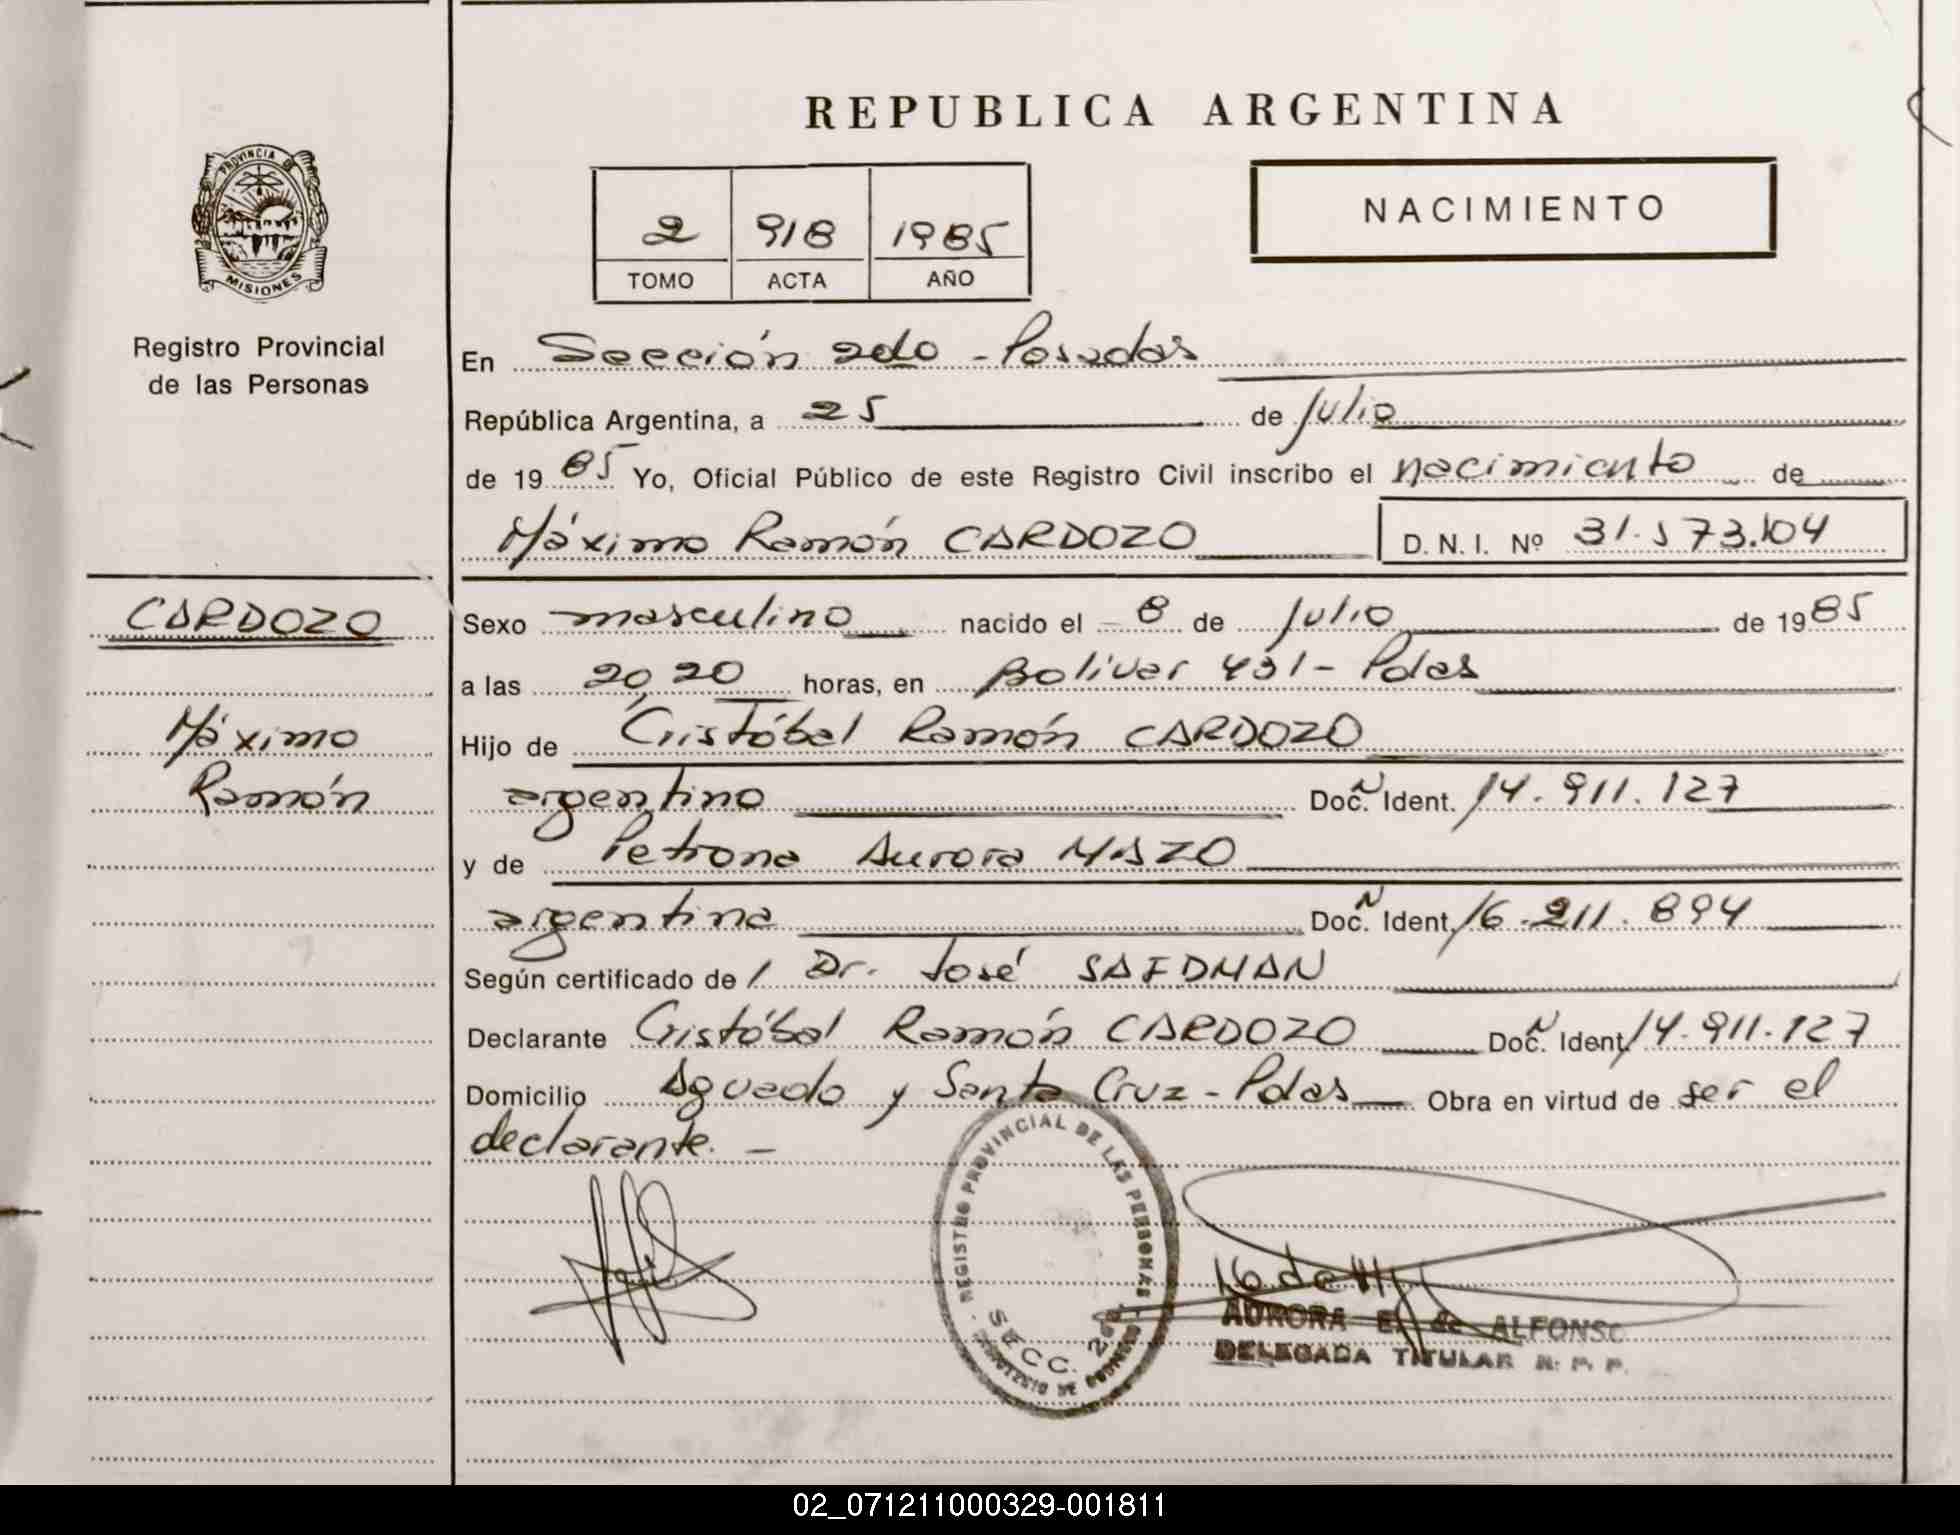 REPUBLICA ARGENTINA
PROVINCIA DE
MISIONES
Registro Provincial
de las Personas
2 918 1985
TOMO ACTA AÑO
NACIMIENTO
En Sección 2da - Posadas
República Argentina, a 25 de Julio
de 1985 Yo, Oficial Público de este Registro Civil inscribo el nacimiento de
Máximo Ramón CARDOZO D. N. I. Nº 31.573.104
CARDOZO
Máximo
Ramón
Sexo masculino nacido el 8 de Julio de 1985
a las 20,20 horas, en Bolivar 431 - Pdas
Hijo de Cristóbal Ramón CARDOZO
argentino Doc. Ident. 14.911.127
y de Petrona Aurora MAZO
argentina Doc. Ident. 16.211.894
Según certificado de / Dr. José SAIDMAN
Declarante Cristóbal Ramón CARDOZO Doc. Ident. 14.911.127
Domicilio Aguado y Santa Cruz - Pdas Obra en virtud de ser el
declarante. -
REGISTRO PROVINCIAL DE LAS PERSONAS
SECC. 2da
AURORA E. de ALFONSO
DELEGADA TITULAR R. P. P.
02_071211000329-001811